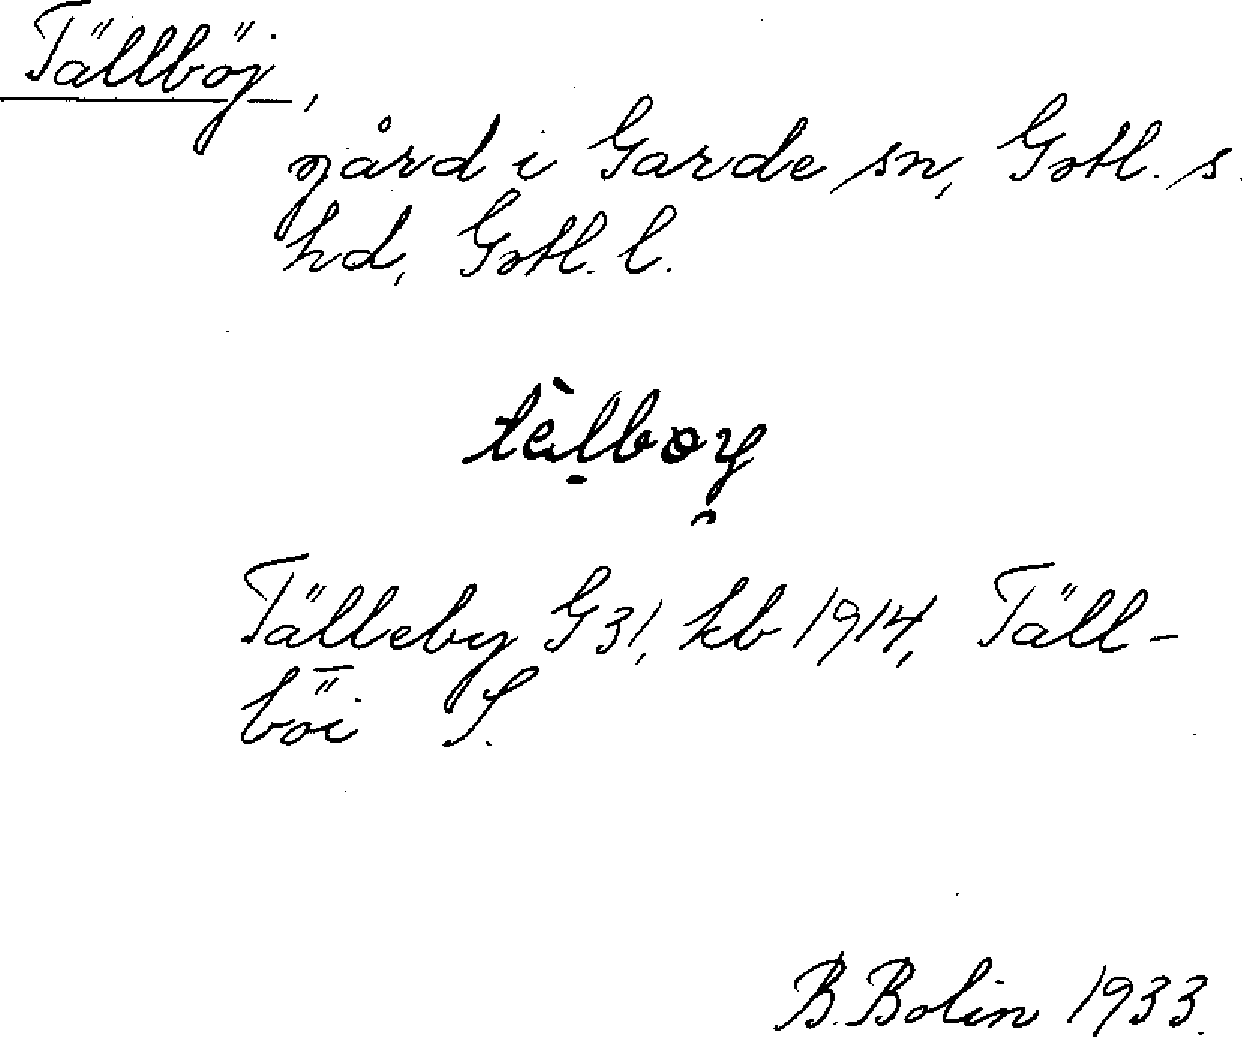 Tällböj,
gård i Garde sn, Gotl. s.
hd, Gotl. l.
tèlboy
Tälleby G31, kb 1914, Täll-
böi S.
B. Bolin 1933.